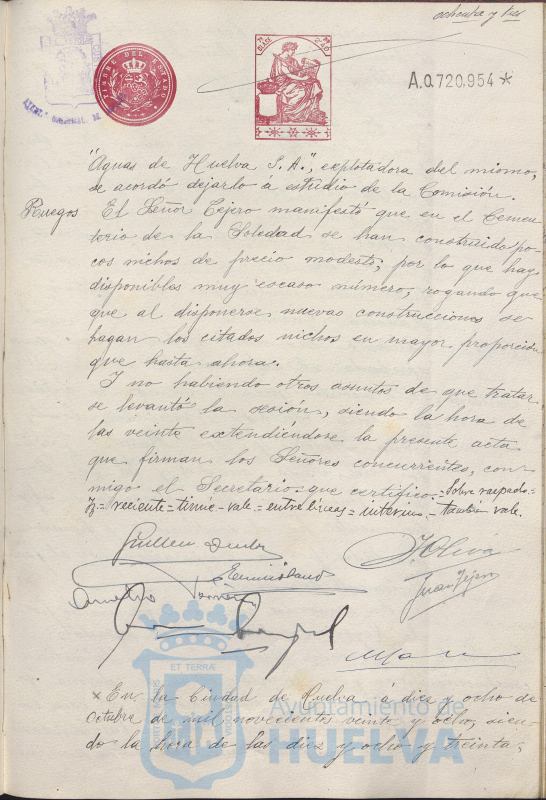 ochenta y tres
TIMBRE DEL ESTADO
A.0720,954*
"Aguas de Huelva S.A.", explotadora del mismo,
se acordó dejarlo á estudio de la Comisión.
Ruegos El Señor Tejero manifestó que en el Cemen
terio de la Soledad se han construido po-
cos nichos de precio modesto, por lo que hay
disponibles muy escaso número, rogando que
que al disponerse nuevas construcciones se
hagan los citados nichos en mayor proporción
que hasta ahora.
Y no habiendo otros asuntos de que tratar
se levantó la sesión, siendo la hora de
las veinte extendiéndose la presente acta
que firman los Señores concurrentes, con-
migo el Secretario que certifico.= Sobre raspado=
= reciente = tiene = vale. = entre líneas = interino = también vale.
J. Oliva
Juan Tejero
ET TERRÆ
× En la Ciudad de Huelva á diez y ocho de
Octubre de mil novecientos veinte y ocho, sien-
do la hora de las diez y ocho y treinta,
Ayuntamiento de
HUELVA